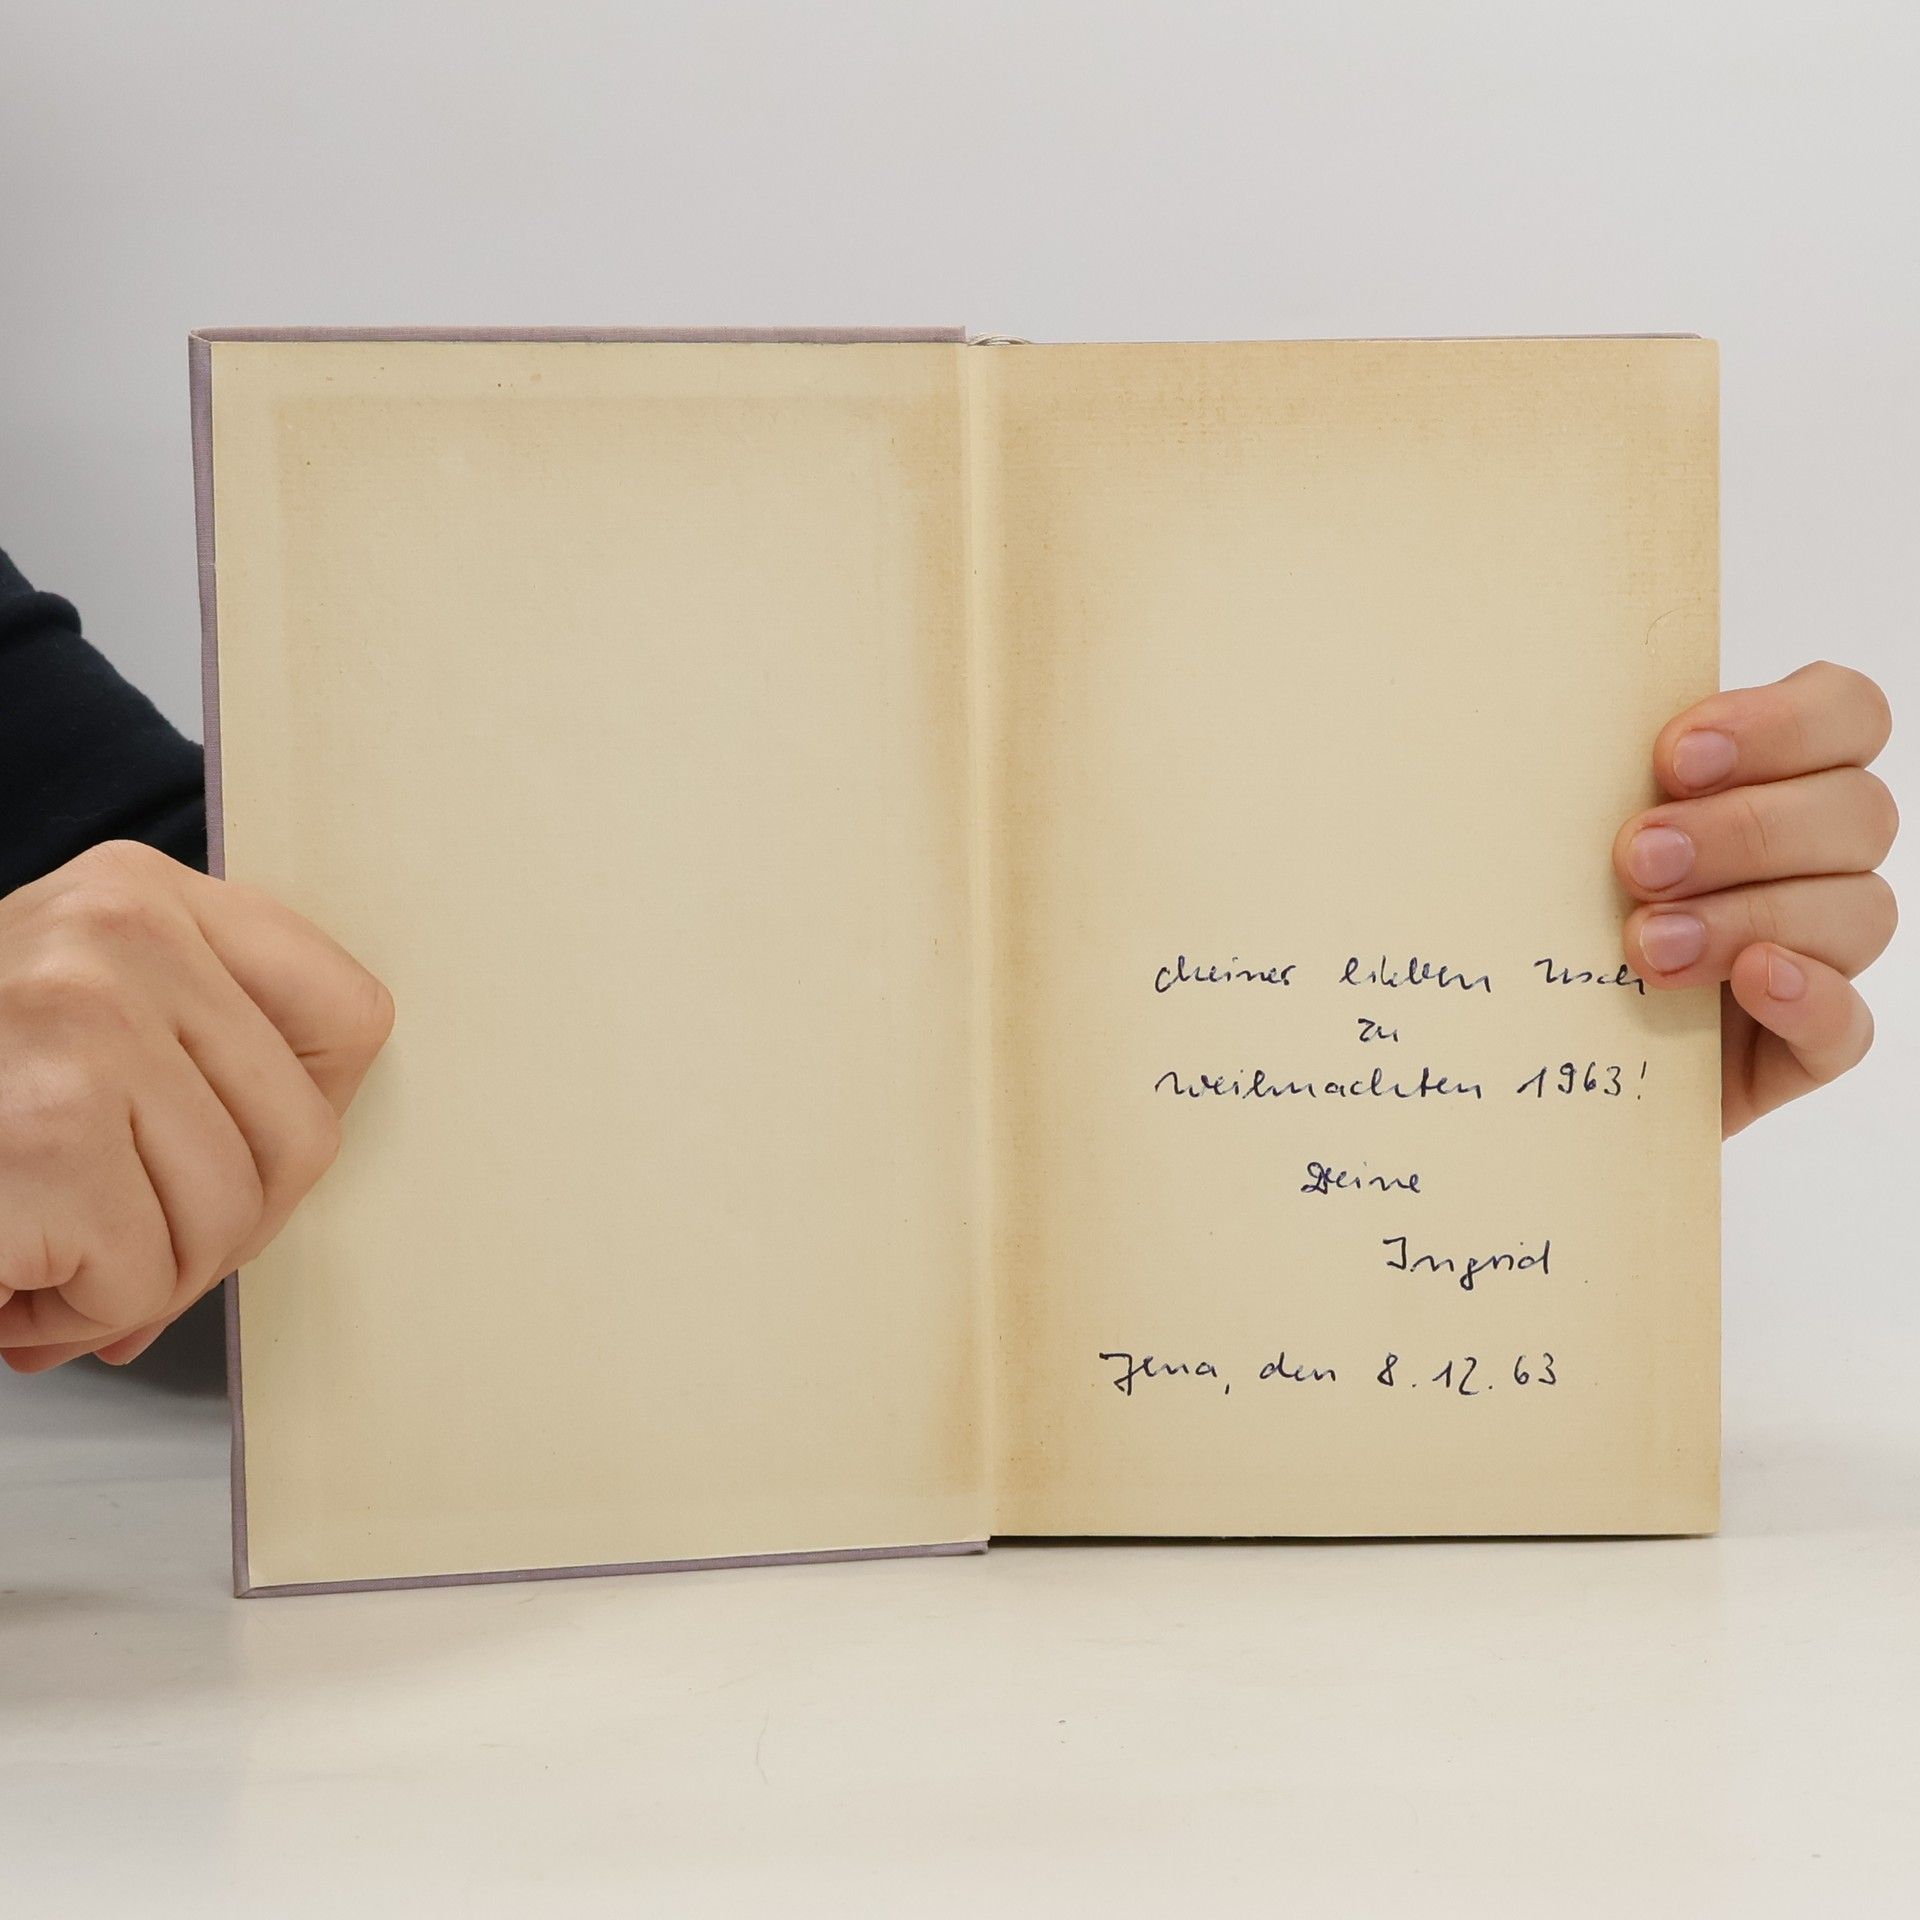 Meiner lieben Usch
zu
Weihnachten 1963!
Deine
Ingrid
Jena, den 8.12.63